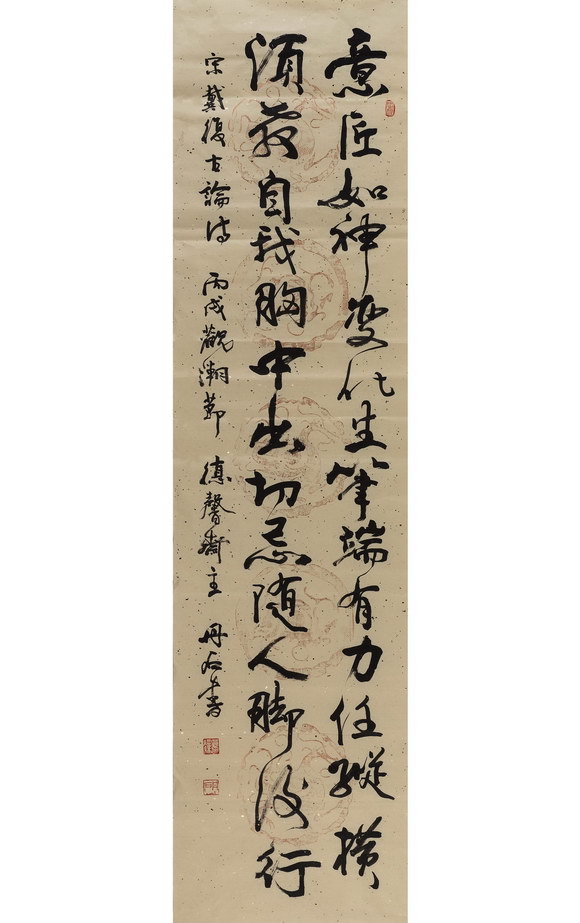 意匠如神變化生筆端有力任縱橫
須教自我胸中出切忌随人脚後行
宋戴復古論詩 丙戌觀潮節 德馨齋主 丹石書